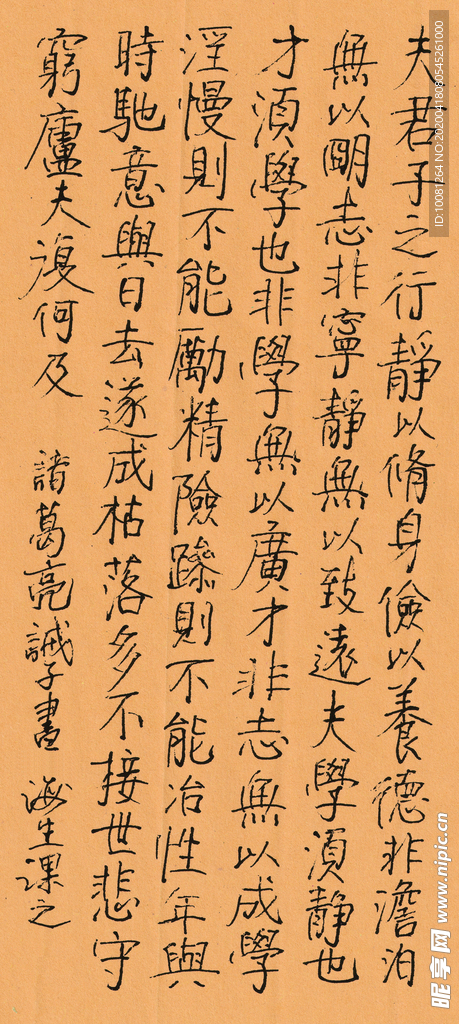 夫君子之行靜以脩身儉以養德非澹泊
無以明志非寧靜無以致遠夫學須靜也
才須學也非學無以廣才非志無以成學
淫慢則不能勵精險躁則不能冶性年與
時馳意與日去遂成枯落多不接世悲守
窮廬夫復何及
諸葛亮誡子書 海生課之
ID:10081264 NO:20200418080545261000
昵享网 www.nipic.cn